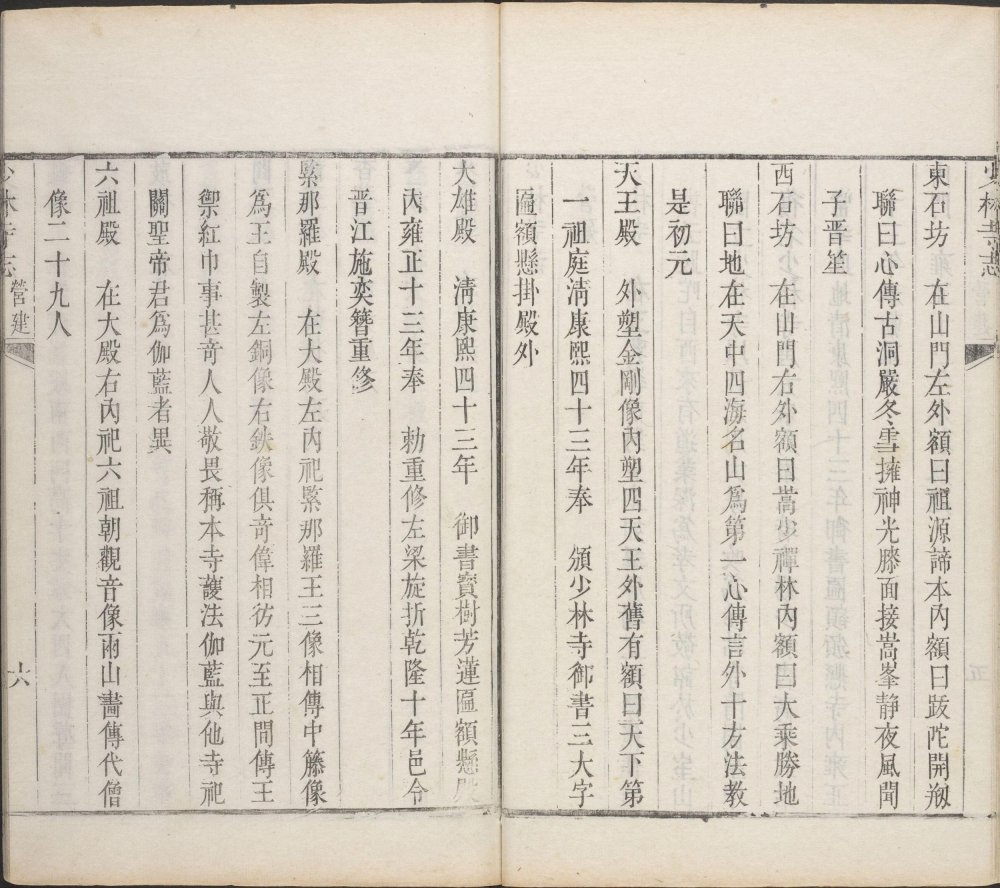 少林寺志
東石坊　在山門左外額曰祖源諦本內額曰跋陀開剏
聯曰心傳古洞嚴冬雪擁神光膝面接嵩峯静夜風聞
子晉笙
西石坊　在山門右外額曰嵩少禪林內額曰大乘勝地
聯曰地在天中四海名山爲第一心傳言外十方法教
是初元
天王殿　外塑金剛像內塑四天王外舊有額曰天下第
一祖庭淸康熙四十三年奉　頒少林寺御書三大字
匾額懸掛殿外
大雄殿　淸康熙四十三年　御書寳樹芳蓮匾額懸殿
內雍正十三年奉　勅重修左梁旋折乾隆十年邑令
晋江施奕簪重修
緊那羅殿　在大殿左內祀緊那羅王三像相傳中籐像
爲王自製左銅像右鉄像俱竒偉相彷元至正間傳王
禦紅巾事甚竒人人敬畏稱本寺護法伽藍與他寺祀
關聖帝君爲伽藍者異
六祖殿　在大殿右內祀六祖朝觀音像兩山畵傳代僧
像二十九人
少林寺志　營建　六